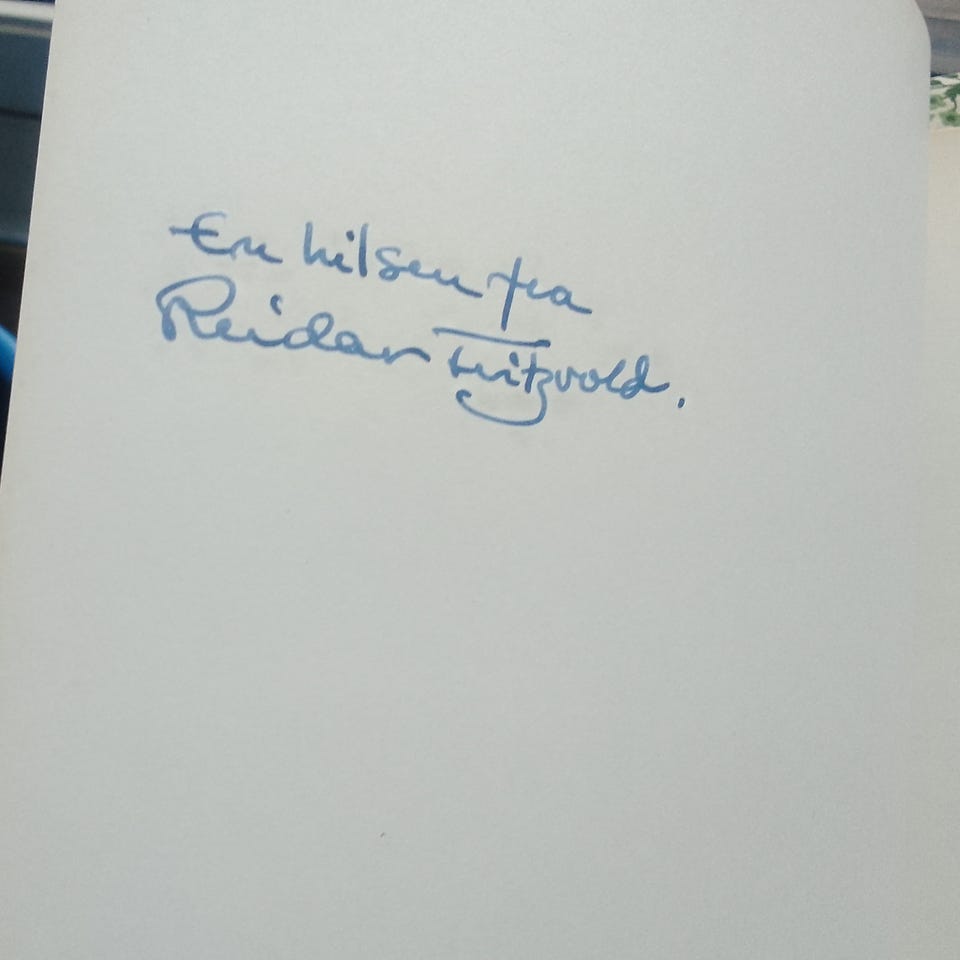 En hilsen fra
Reidar Fritzvold.